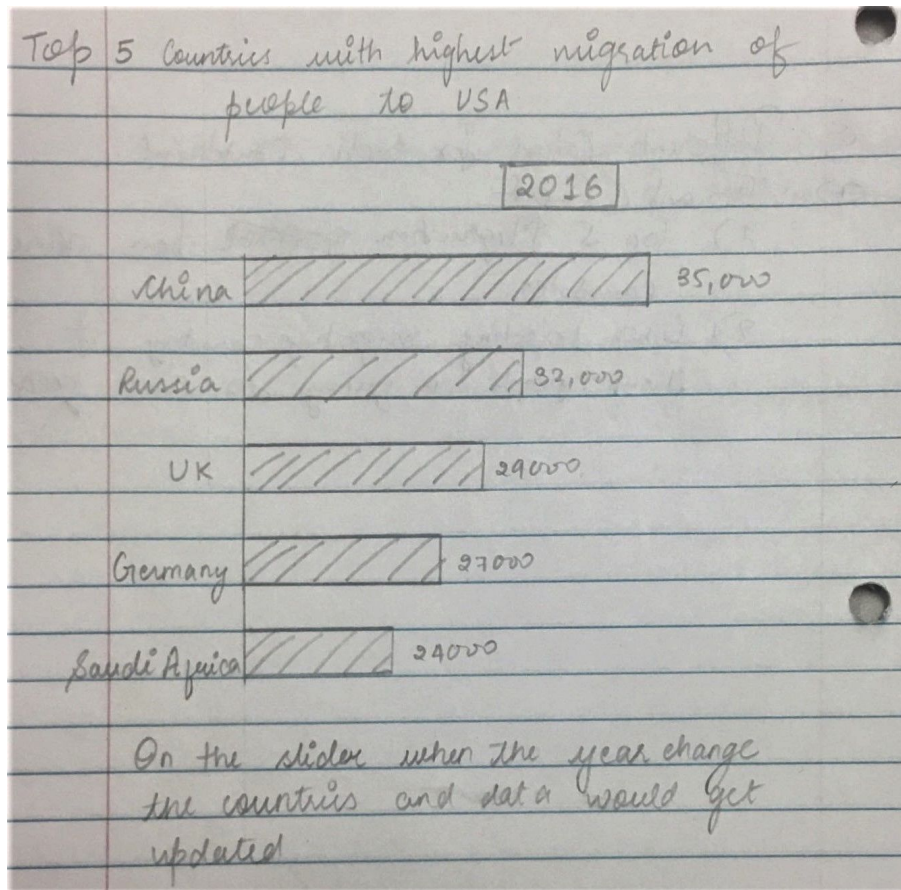 Top 5 Countries with highest migration of
people to USA
2016
China 35,000
Russia 32,000
UK 29000
Germany 27000
Saudi Africa 24000
On the slider when the year change
the countries and data would get
updated